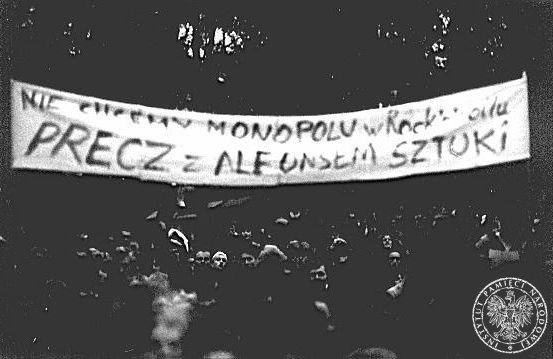 NIE CHCEMY MONOPOLU w Rock'u
PRECZ z ALFONSEM SZTUKI
INSTYTUT PAMIĘCI NARODOWEJ